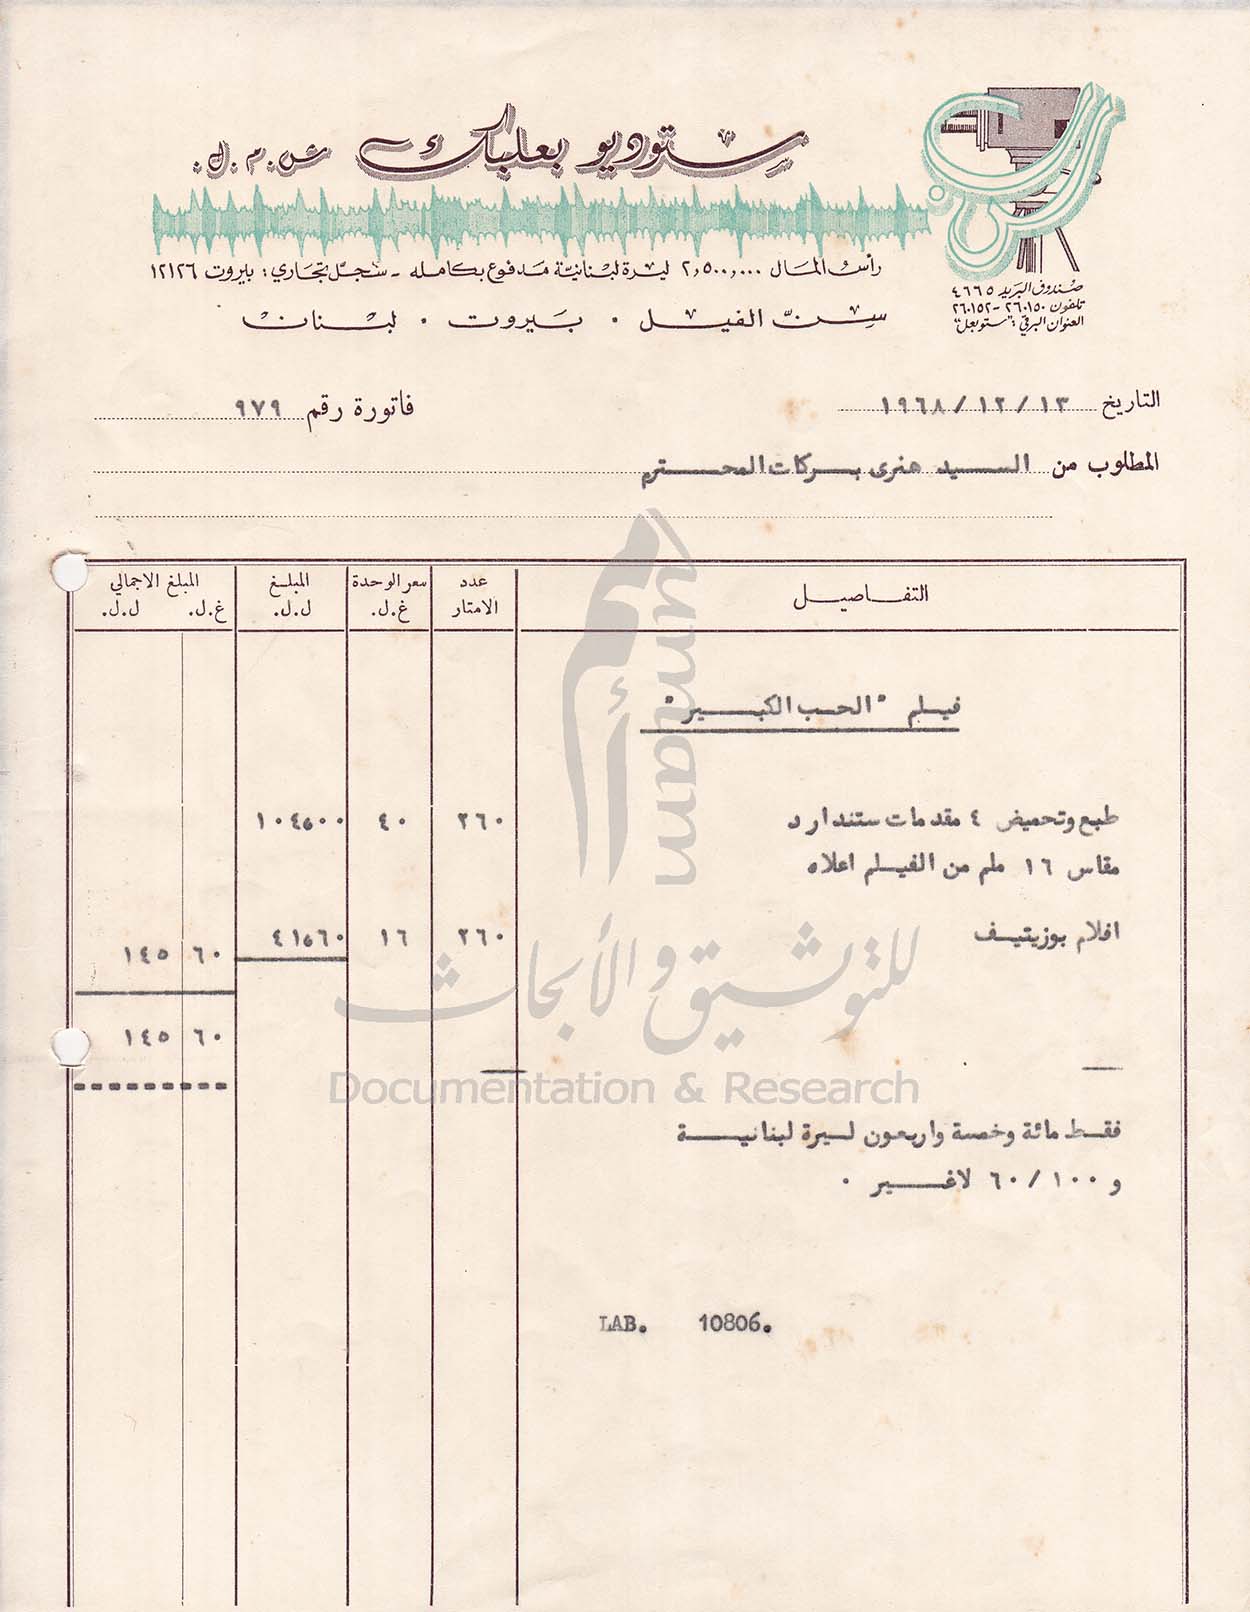 ستوديو بعلبك ش.م.ل.
رأس المال ٢,٥٠٠,٠٠٠ ليرة لبنانيّة مدفوع بكامله - سجلّ تجاري: بيروت ١٢١٢٦
سنّ الفيل . بيروت . لبنان
صندوق البريد ٤٦٦٥
تلفون ٢٦٠١٥٠ - ٢٦٠١٥٢
العنوان البرقي: "ستوبعل"
التاريخ ١٣/ ١٢ /١٩٦٨
فاتورة رقم ٩٧٩
المطلوب من السيد هنرى بركات المحترم
التفاصيل عدد الامتار سعر الوحدة غ.ل. المبلغ ل.ل. المبلغ الاجمالي غ.ل. ل.ل.
فيلم "الحب الكبير"
طبع وتحميض ٤ مقدمات ستندارد ٢٦٠ ٤٠ ١٠٤٥٠٠
مقاس ١٦ ملم من الفيلم اعلاه
افلام بوزيتيف ٢٦٠ ١٦ ٤١٥٦٠
٦٠ ١٤٥
٦٠ ١٤٥
فقط مائة وخمسة واربعون ليرة لبنانية
و ١٠٠/ ٦٠ لاغير .
LAB. 10806.
أمم
umam
للتوثيق والأبحاث
Documentation & Research